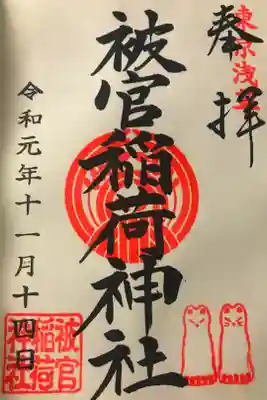 奉拝
東京浅草
被官稲荷神社
令和元年十一月十四日
被官
稲荷
神社